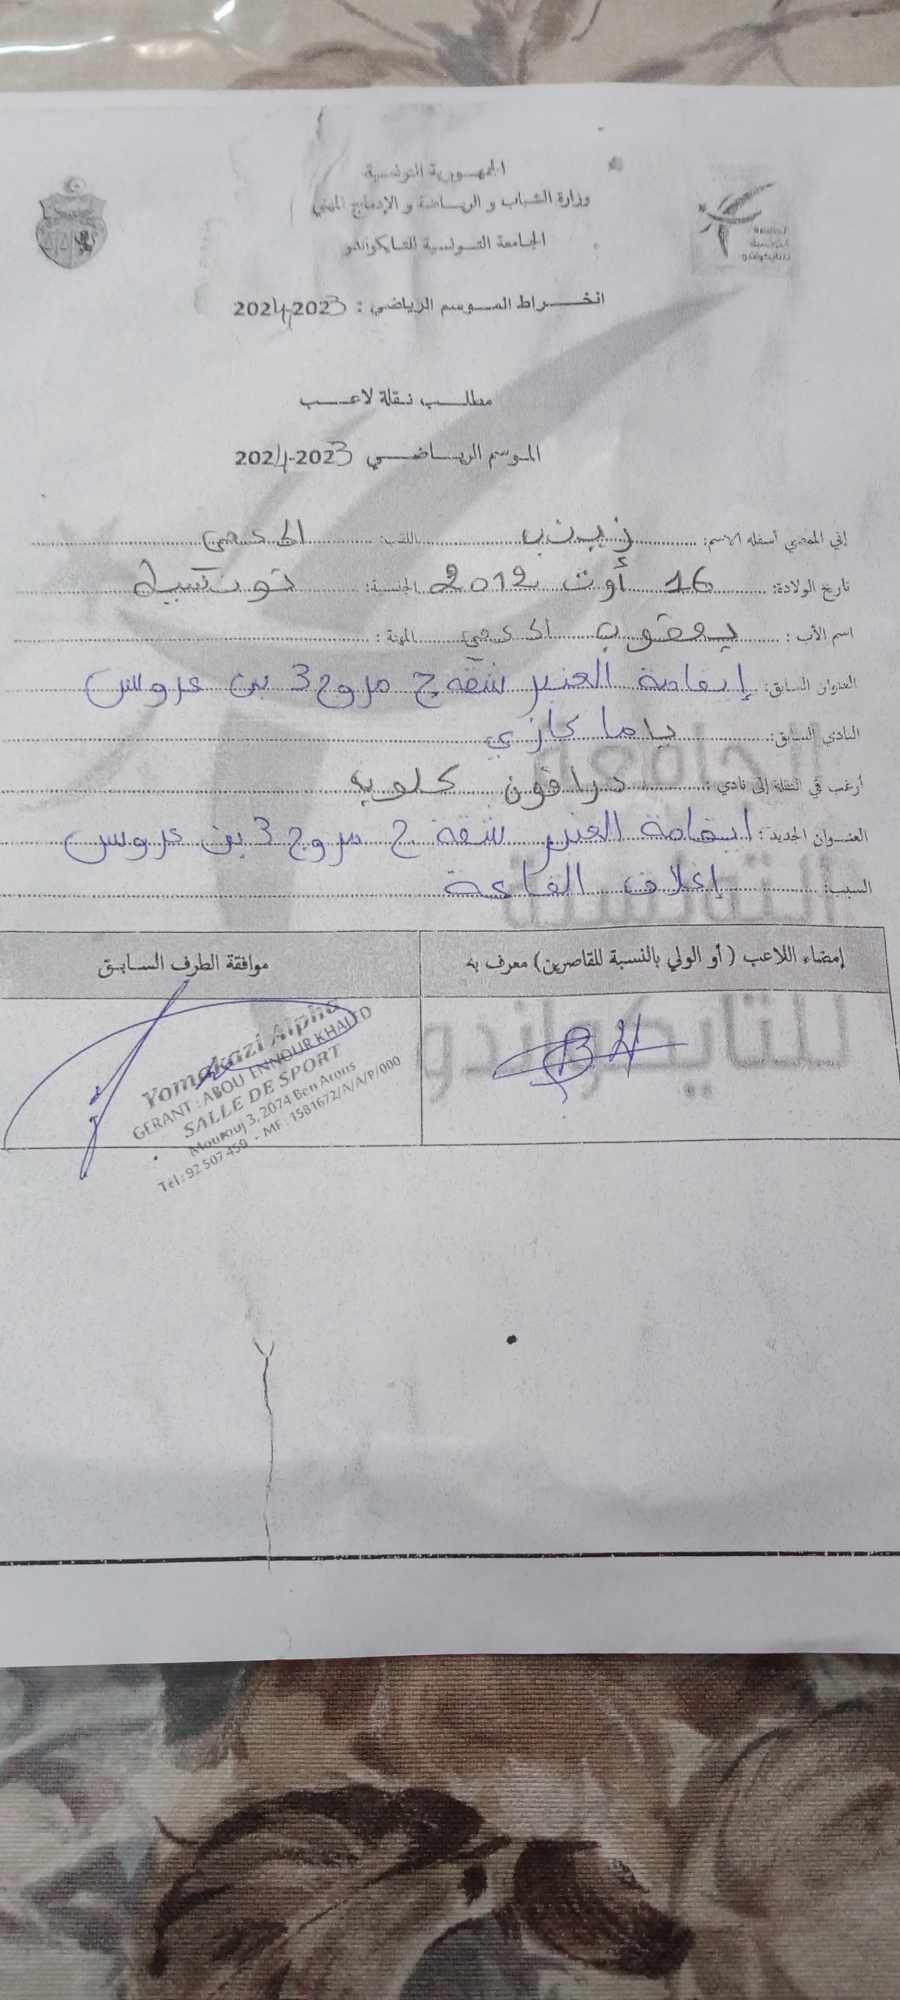 الجمهورية التونسية
وزارة الشباب و الرياضة و الإدماج المهني
الجامعة التونسية للتايكواندو
انخراط الموسم الرياضي : 2023-2024
مطلب نقلة لاعب
الموسم الرياضي 2023-2024
إني الممضي أسفله الاسم: زينب اللقب:
تاريخ الولادة: 16 أوت 2012 الجنسية: تونسية
اسم الأب : يعقوب المهنة :
العنوان السابق: إقامة العنبر شقة ج مروج 3 بن عروس
النادي السابق: ياماكازي
أرغب في النقلة إلى نادي : دراقون كلوب
العنوان الجديد : اقامة العنبر شقة ج مروج 3 بن عروس
السبب: إغلاق القاعة
إمضاء اللاعب ( أو الولي بالنسبة للقاصرين) معرف به
موافقة الطرف السابق
Yomakazi Alpha
GERANT : ABOU ENNOUR KHALED
SALLE DE SPORT
Mourouj 3, 2074 Ben Arous
Tél : 92 507 459 - MF : 1581672/A/A/P/000
BH
الجامعة
التونسية
للتايكواندو